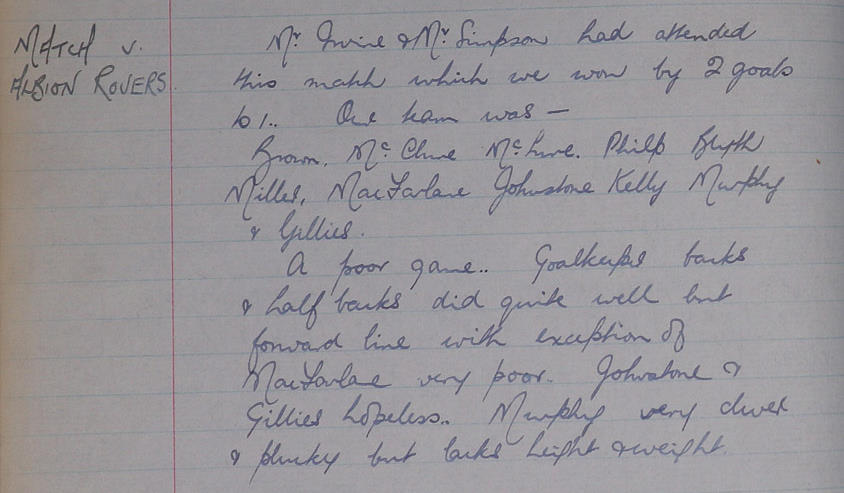 MATCH v.
ALBION ROVERS.
Mr. Irvine & Mr. Simpson had attended
this match which we won by 2 goals
to 1.. Our team was —
Brown, Mc. Clure Mc. Lure. Philp Blyth
Miller, MacFarlane Johnstone Kelly Murphy
& Gillies.
A poor game.. Goalkeeper backs
& half backs did quite well but
forward line with exception of
MacFarlane very poor. Johnstone &
Gillies hopeless.. Murphy very clever
& plucky but lacks height & weight.